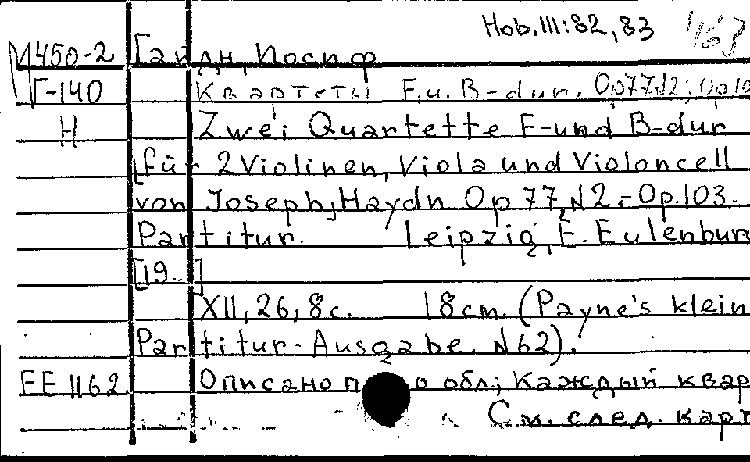 Hob.III:82,83 1163
М450-2 Гайдн, Иосиф
Г-140 Квартеты F. u. B-dur. Op77N2; Op10
H Zwei Quartette F-und B-dur
für 2 Violinen, Viola und Violoncell
von Joseph Haydn Op 77, N2 - Op.103.
Partitur. Leipzig, E. Eulenbur
[19..]
XII, 26, 8 с. 18 cm. (Payne's klein
Partitur-Ausgabe. N62).
EE 1162 Описано п о обл; Каждый квар
См. след. карт